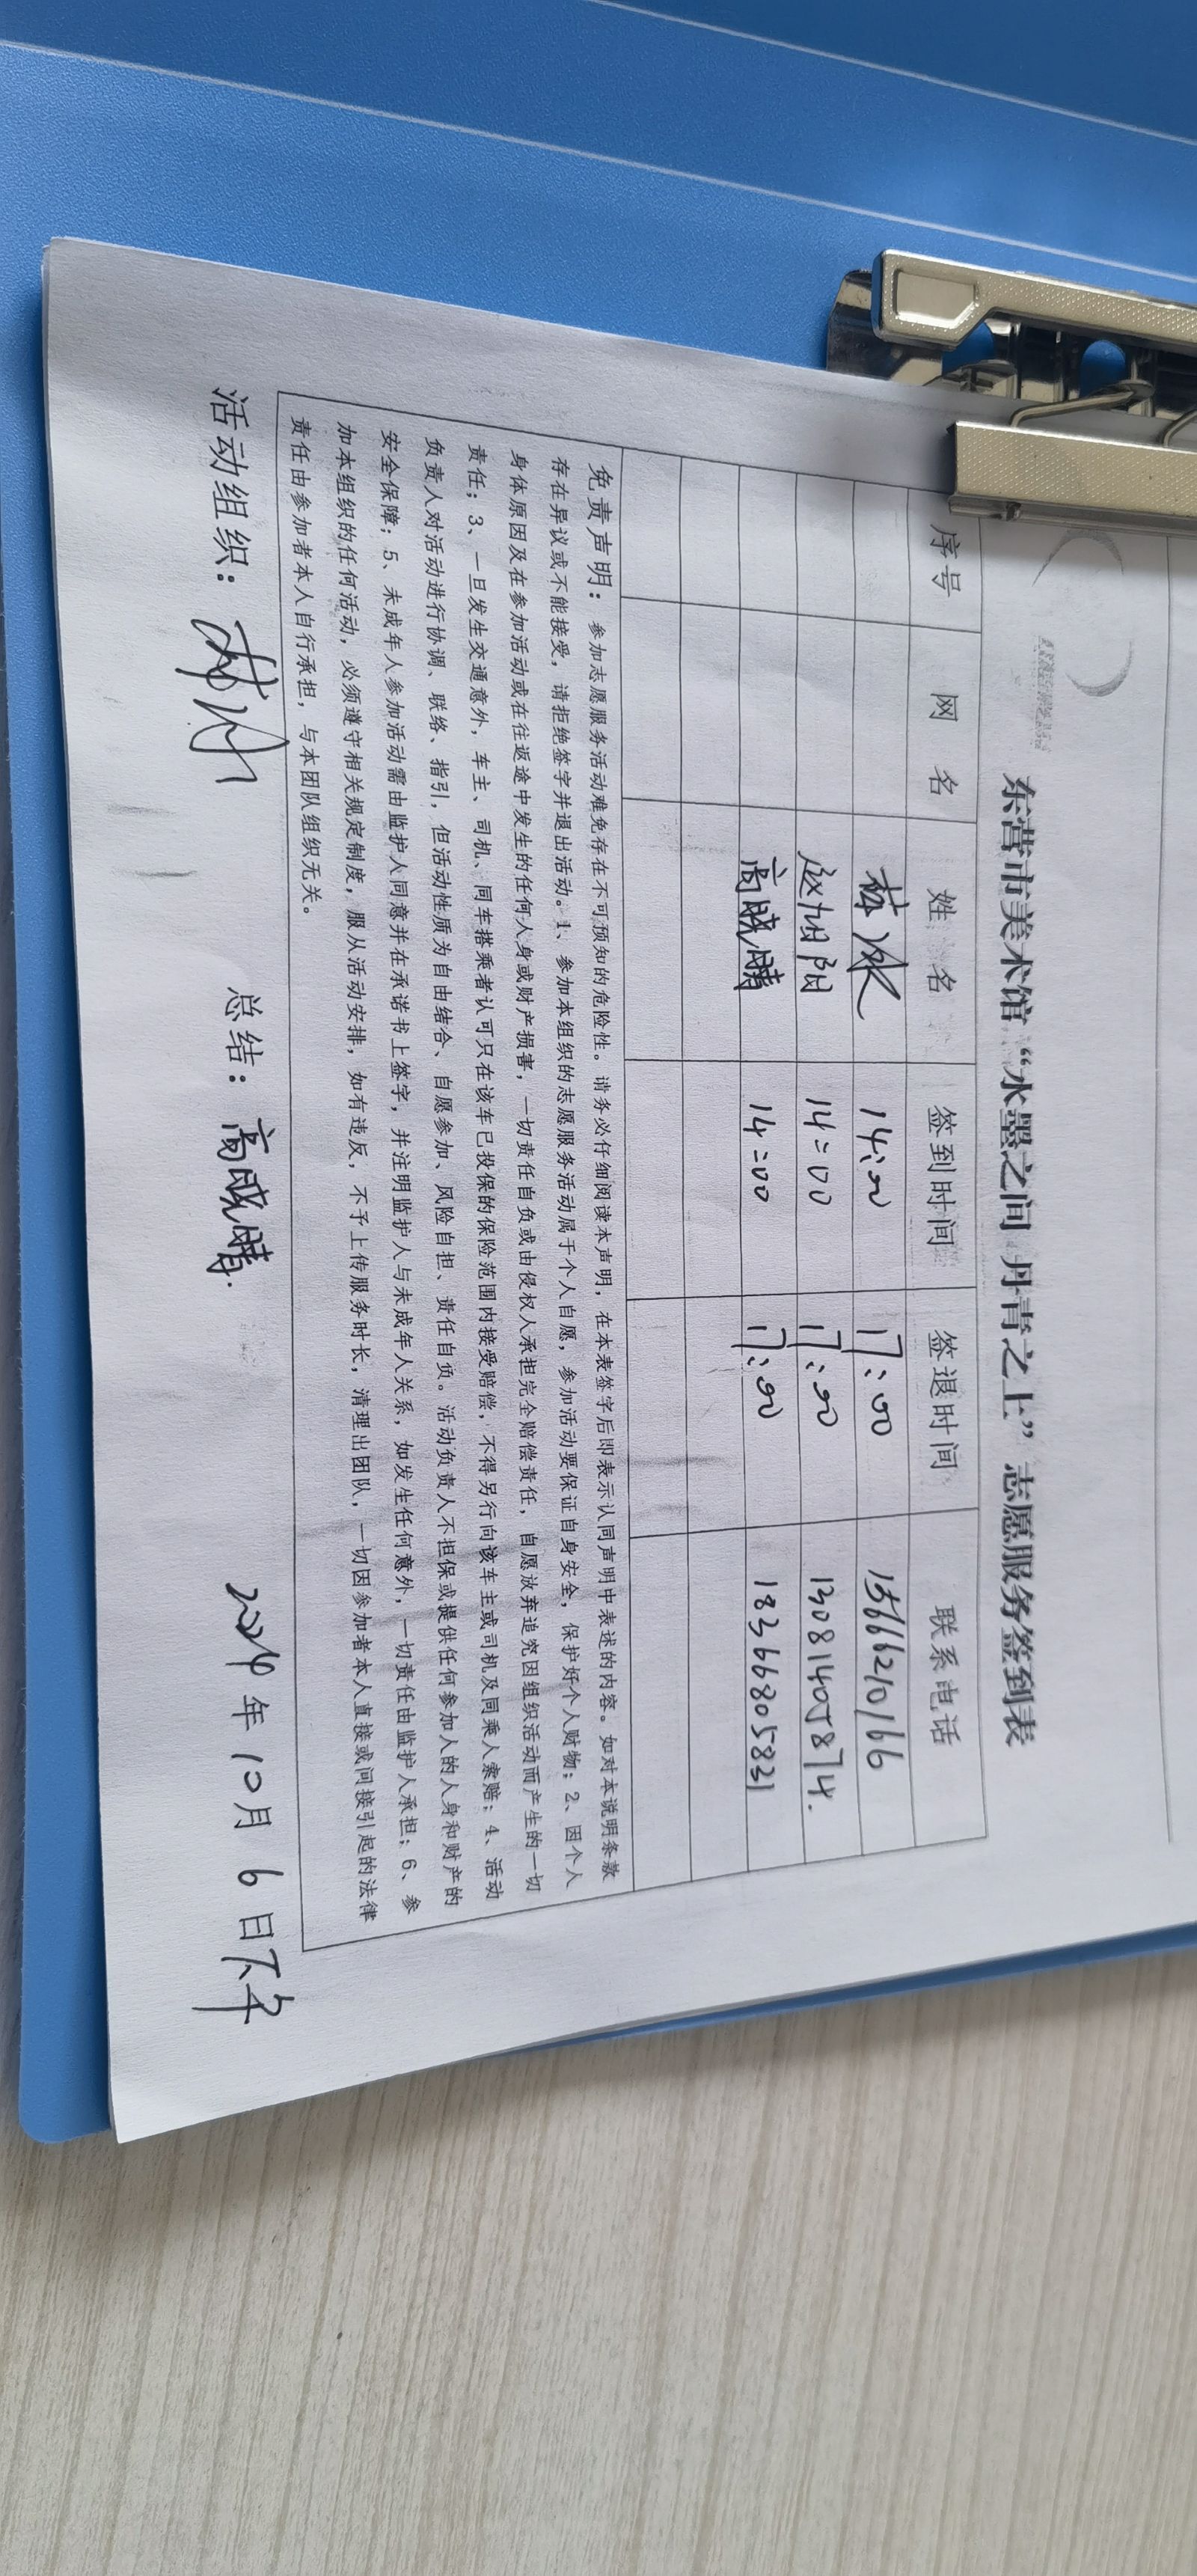 东营市美术馆“水墨之间 丹青之上”志愿服务签到表
序号 网 名 姓 名 签到时间 签退时间 联系电话
林冰 14:00 17:00 15666210166
赵旭阳 14:00 17:00 13081405874.
高晓晴 14:00 17:00 18366805831
免责声明：参加志愿服务活动难免存在不可预知的危险性。请务必仔细阅读本声明，在本表签字后即表示认同声明中表述的内容。如对本说明条款
存在异议或不能接受，请拒绝签字并退出活动。1、参加本组织的志愿服务活动属于个人自愿，参加活动要保证自身安全，保护好个人财物；2、因个人
身体原因及在参加活动或在往返途中发生的任何人身或财产损害，一切责任自负或由侵权人承担完全赔偿责任，自愿放弃追究因组织活动而产生的一切
责任；3、一旦发生交通意外，车主、司机、同车搭乘者认可只在该车已投保的保险范围内接受赔偿，不得另行向该车主或司机及同乘人索赔；4、活动
负责人对活动进行协调、联络、指引，但活动性质为自由结合、自愿参加、风险自担、责任自负。活动负责人不担保或提供任何参加人的人身和财产的
安全保障；5、未成年人参加活动需由监护人同意并在承诺书上签字，并注明监护人与未成年人关系，如发生任何意外，一切责任由监护人承担；6、参
加本组织的任何活动，必须遵守相关规定制度，服从活动安排，如有违反，不予上传服务时长，清理出团队，一切因参加者本人直接或间接引起的法律
责任由参加者本人自行承担，与本团队组织无关。
活动组织：林冰 总结：高晓晴. 2024年10月6日下午